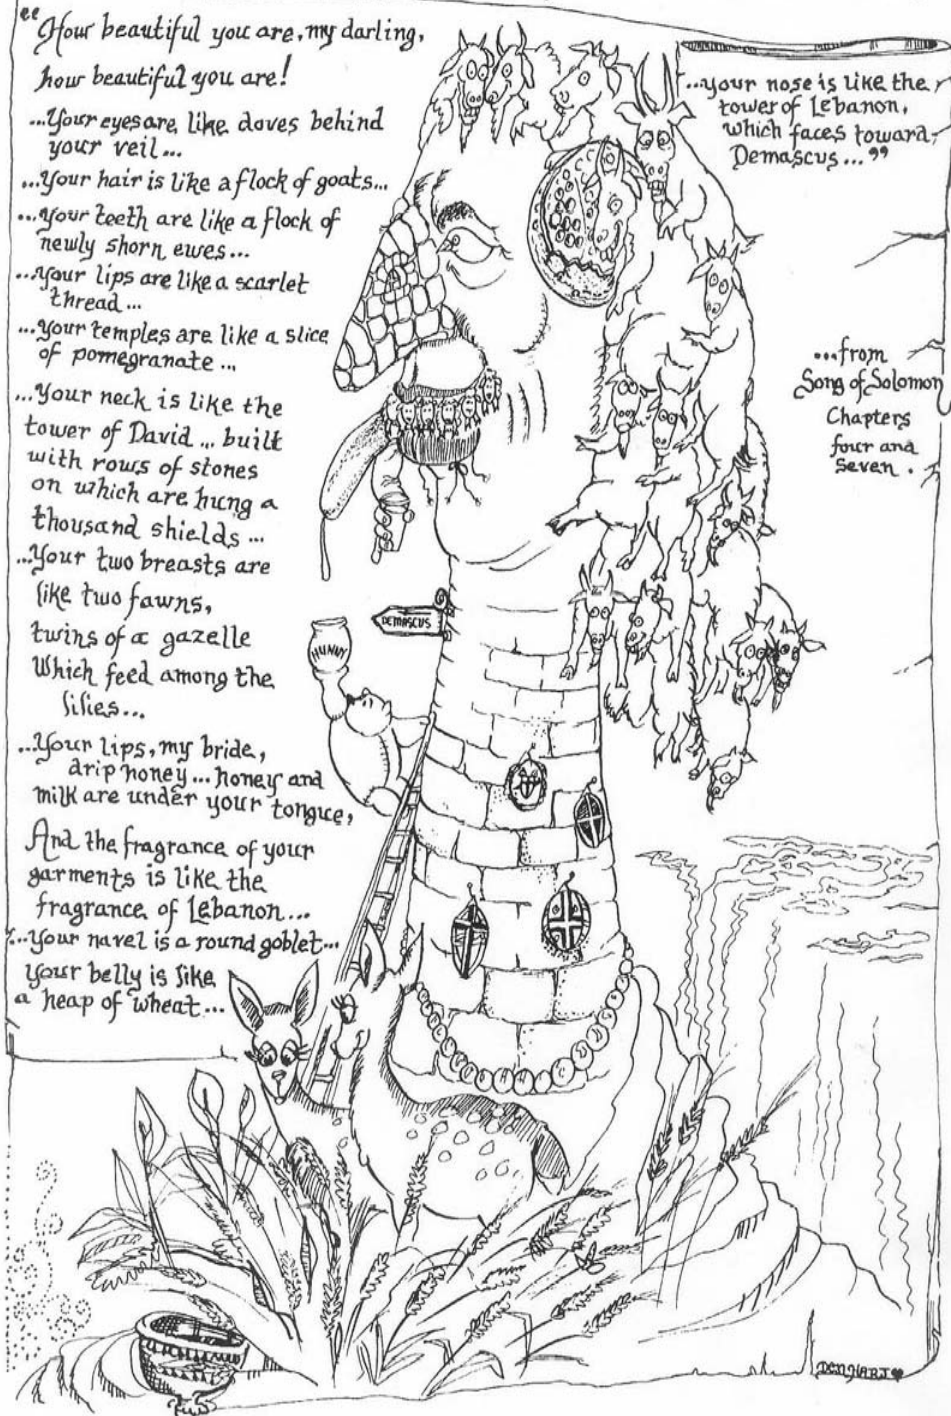 "How beautiful you are, my darling,
how beautiful you are!
...Your eyes are like doves behind
your veil...
...Your hair is like a flock of goats...
...Your teeth are like a flock of
newly shorn ewes...
...Your lips are like a scarlet
thread...
...Your temples are like a slice
of pomegranate...
...Your neck is like the
tower of David... built
with rows of stones
on which are hung a
thousand shields...
...Your two breasts are
like two fawns,
twins of a gazelle
Which feed among the
lilies...
...Your lips, my bride,
drip honey... honey and
milk are under your tongue,
And the fragrance of your
garments is like the
fragrance of Lebanon...
...Your navel is a round goblet...
Your belly is like
a heap of wheat...
...your nose is like the
tower of Lebanon,
which faces toward
Demascus..."
...from
Song of Solomon
Chapters
four and
Seven.
DEMASCUS
HUNNY
DEN HART